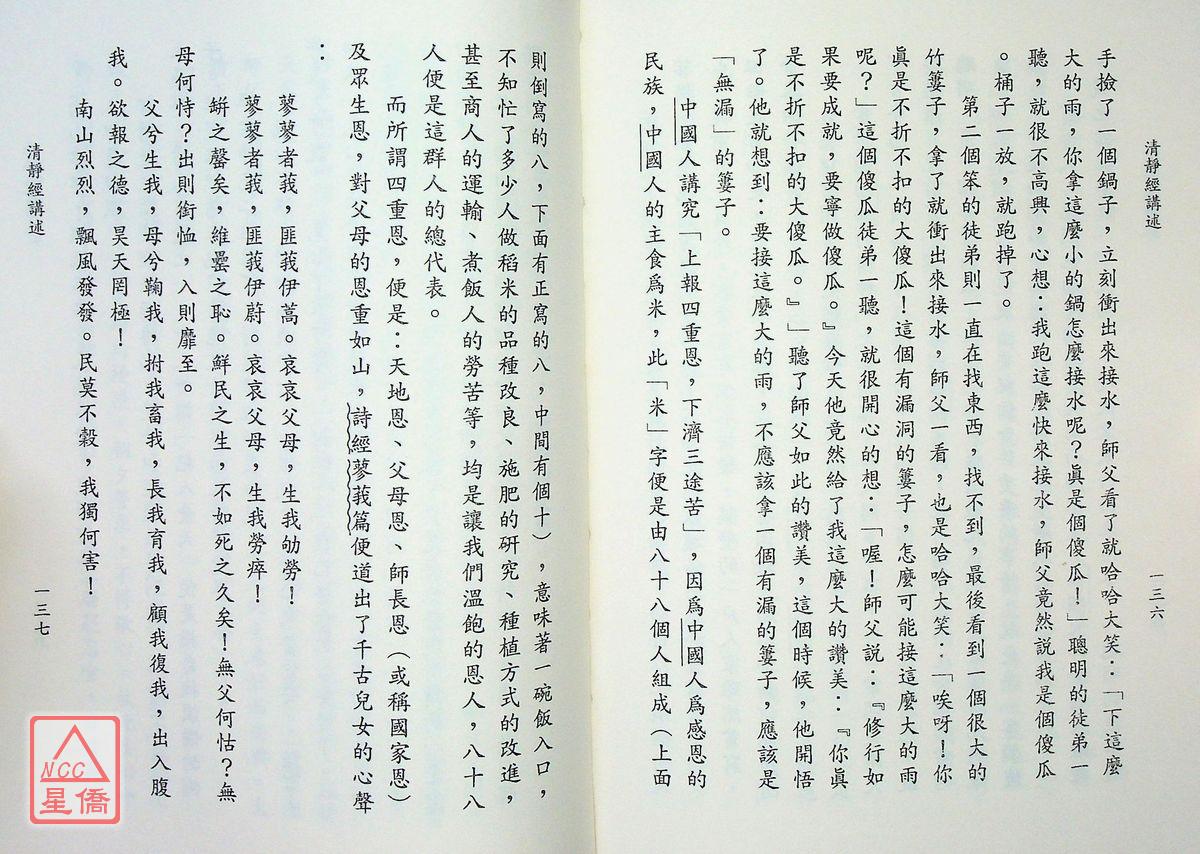 清靜經講述
一三六
手撿了一個鍋子，立刻衝出來接水，師父看了就哈哈大笑：「下這麼
大的雨，你拿這麼小的鍋怎麼接水呢？眞是個傻瓜！」聰明的徒弟一
聽，就很不高興，心想：我跑這麼快來接水，師父竟然說我是個傻瓜
。桶子一放，就跑掉了。
第二個笨的徒弟則一直在找東西，找不到，最後看到一個很大的
竹簍子，拿了就衝出來接水，師父一看，也是哈哈大笑：「唉呀！你
眞是不折不扣的大傻瓜！這個有漏洞的簍子，怎麼可能接這麼大的雨
呢？」這個傻瓜徒弟一聽，就很開心的想：「喔！師父說：『修行如
果要成就，要寧做傻瓜。』今天他竟然給了我這麼大的讚美：『你眞
是不折不扣的大傻瓜。』」聽了師父如此的讚美，這個時候，他開悟
了。他就想到：要接這麼大的雨，不應該拿一個有漏的簍子，應該是
「無漏」的簍子。
中國人講究「上報四重恩，下濟三途苦」，因爲中國人爲感恩的
民族，中國人的主食爲米，此「米」字便是由八十八個人組成（上面
則倒寫的八，下面有正寫的八，中間有個十），意味著一碗飯入口，
不知忙了多少人做稻米的品種改良、施肥的研究、種植方式的改進，
甚至商人的運輸、煮飯人的勞苦等，均是讓我們溫飽的恩人，八十八
人便是這群人的總代表。
而所謂四重恩，便是：天地恩、父母恩、師長恩（或稱國家恩）
及眾生恩，對父母的恩重如山，詩經蓼莪篇便道出了千古兒女的心聲
：
蓼蓼者莪，匪莪伊蒿。哀哀父母，生我劬勞！
蓼蓼者莪，匪莪伊蔚。哀哀父母，生我勞瘁！
缾之罄矣，維罍之恥。鮮民之生，不如死之久矣！無父何怙？無
母何恃？出則銜恤，入則靡至。
父兮生我，母兮鞠我，拊我畜我，長我育我，顧我復我，出入腹
我。欲報之德，昊天罔極！
南山烈烈，飄風發發。民莫不穀，我獨何害！
清靜經講述
一三七
NCC
星僑